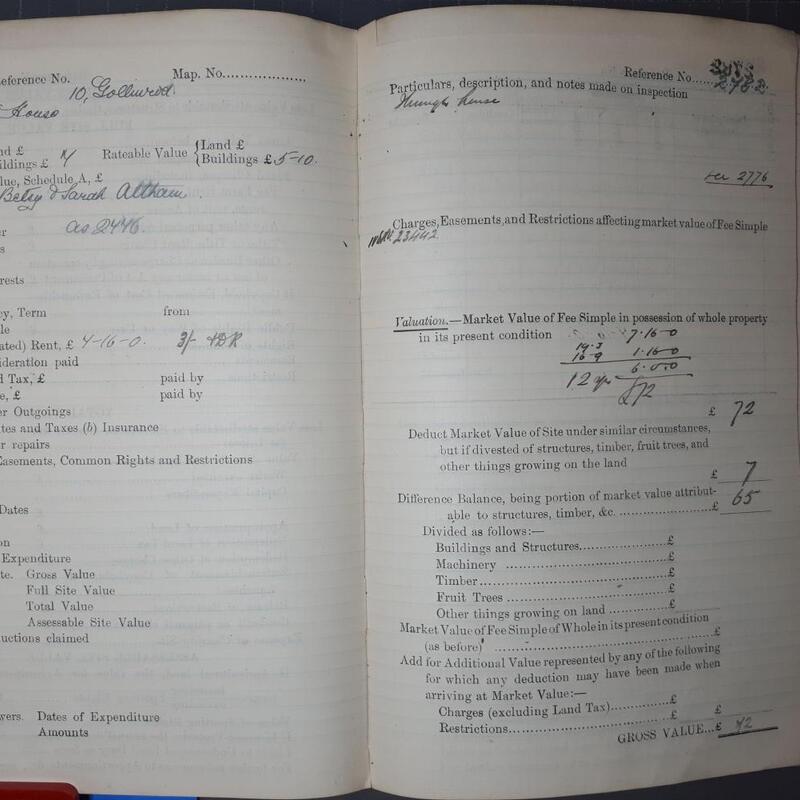 Reference No. Map. No....................
10, Gollinrod.
House
nd £
ildings £ Rateable Value {Land £
Buildings £ 5-10.
lue, Schedule A, £
Betsy & Sarah Altham.
er as 2446.
s
rests
cy, Term from
le
ated) Rent, £ 4-16-0. 3/-
ideration paid
d Tax, £ paid by
e, £ paid by
er Outgoings
ates and Taxes (b) Insurance
r repairs
Easements, Common Rights and Restrictions
Dates
on
Expenditure
te. Gross Value
Full Site Value
Total Value
Assessable Site Value
uctions claimed
wers. Dates of Expenditure
Amounts
Reference No.
Particulars, description, and notes made on inspection
Through house
2776
Charges, Easements, and Restrictions affecting market value of Fee Simple
23442
Valuation.—Market Value of Fee Simple in possession of whole property
in its present condition 7.16-0
19.3 1.16-0
16-9 6.0.0
12 yrs £72
£ 72
Deduct Market Value of Site under similar circumstances,
but if divested of structures, timber, fruit trees, and
other things growing on the land
£ 7
Difference Balance, being portion of market value attribut-
able to structures, timber, &c. ....................£ 65
Divided as follows:—
Buildings and Structures..................£
Machinery ....................................£
Timber..........................................£
Fruit Trees ....................................£
Other things growing on land ............£
Market Value of Fee Simple of Whole in its present condition
(as before) .............................................£
Add for Additional Value represented by any of the following
for which any deduction may have been made when
arriving at Market Value:—
Charges (excluding Land Tax)............£
Restrictions....................................£ £
GROSS VALUE...£ 72